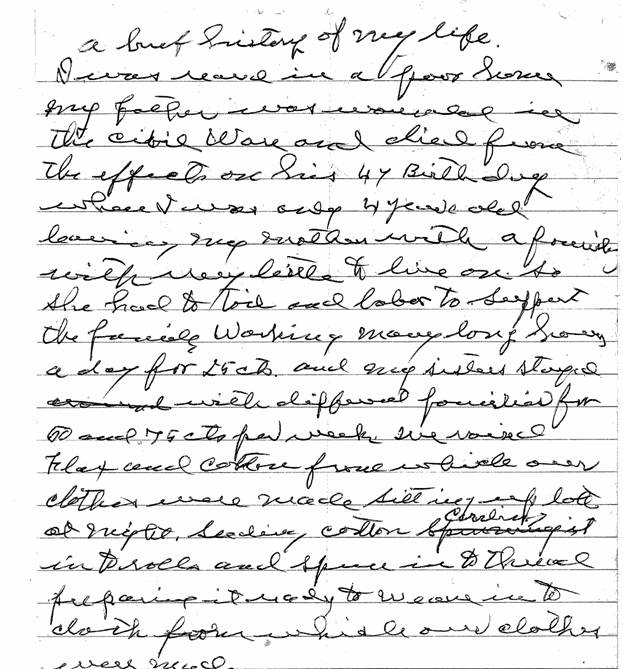 a brief history of my life.
I was reard in a poor home
my father was wounded in
the civil Ware and died from
the effects on his 47 Birth day
when I was only 4 years old
leaving my mother with a family
with very little to live on. So
she had to toil and labor to support
the family Working many long hours
a day for 25 cts. and my sisters stayed
with different families for
50 and 75 cts per week. we raised
Flax and cotton from which our
clothes were made sitting up late
at night, seeding cotton Carding it
in to rolls and spun in to thread
preparing it ready to weave in to
cloth from which our clothes
were made.